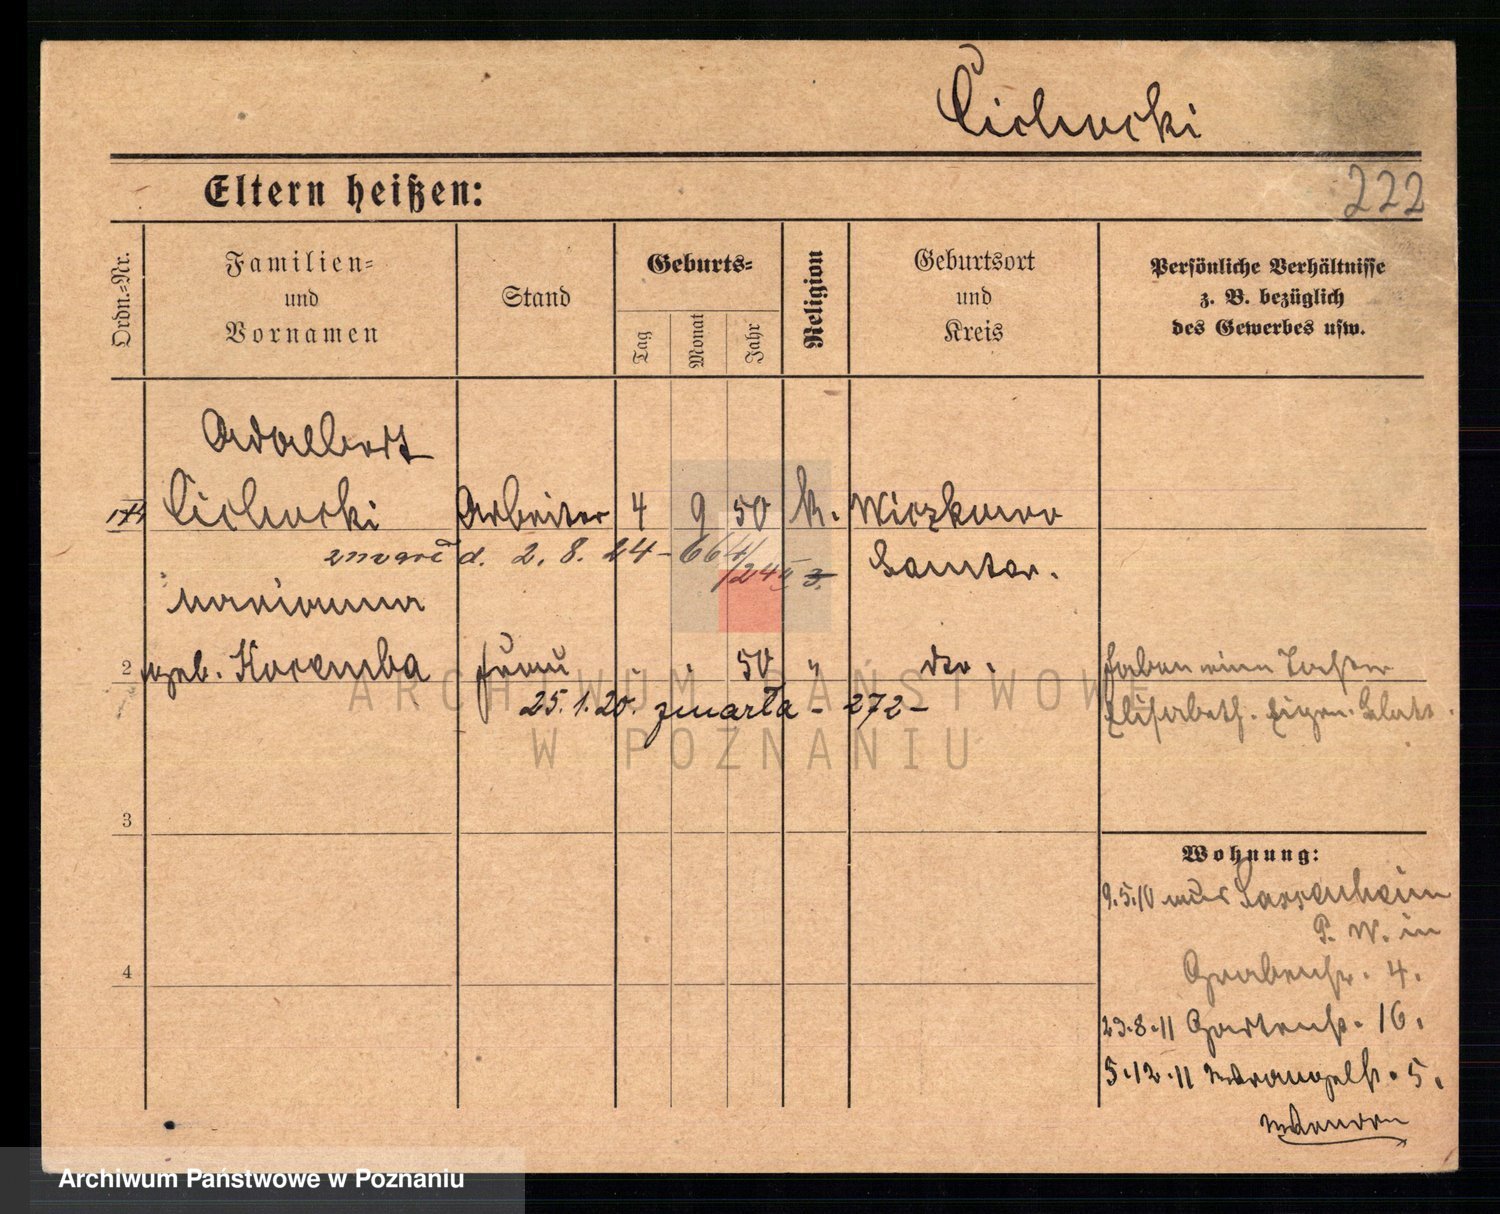 Cichocki
Eltern heißen:
222
Ordn.-Nr.
Familien-
und
Vornamen
Stand
Geburts-
Tag
Monat
Jahr
Religion
Geburtsort
und
Kreis
Persönliche Verhältnisse
z. B. bezüglich
des Gewerbes usw.
Adalbert
Cichocki Arbeiter 4 9 50 k.
Samter.
d. 2. 8. 24 - 664/
Marianna
2 geb. Kocemba Frau 50 " do. haben eine Tochter
25.1.20. zmarła - 272 -
Elisabeth.
3
Wohnung:
9.5.10 aus Sassenheim
P. W. in
4
Grabenstr. 4.
23.8.11 Gartenstr. 16.
5.12.11 Wrangelstr. 5.
ARCHIWUM PAŃSTWOWE
W POZNANIU
Archiwum Państwowe w Poznaniu